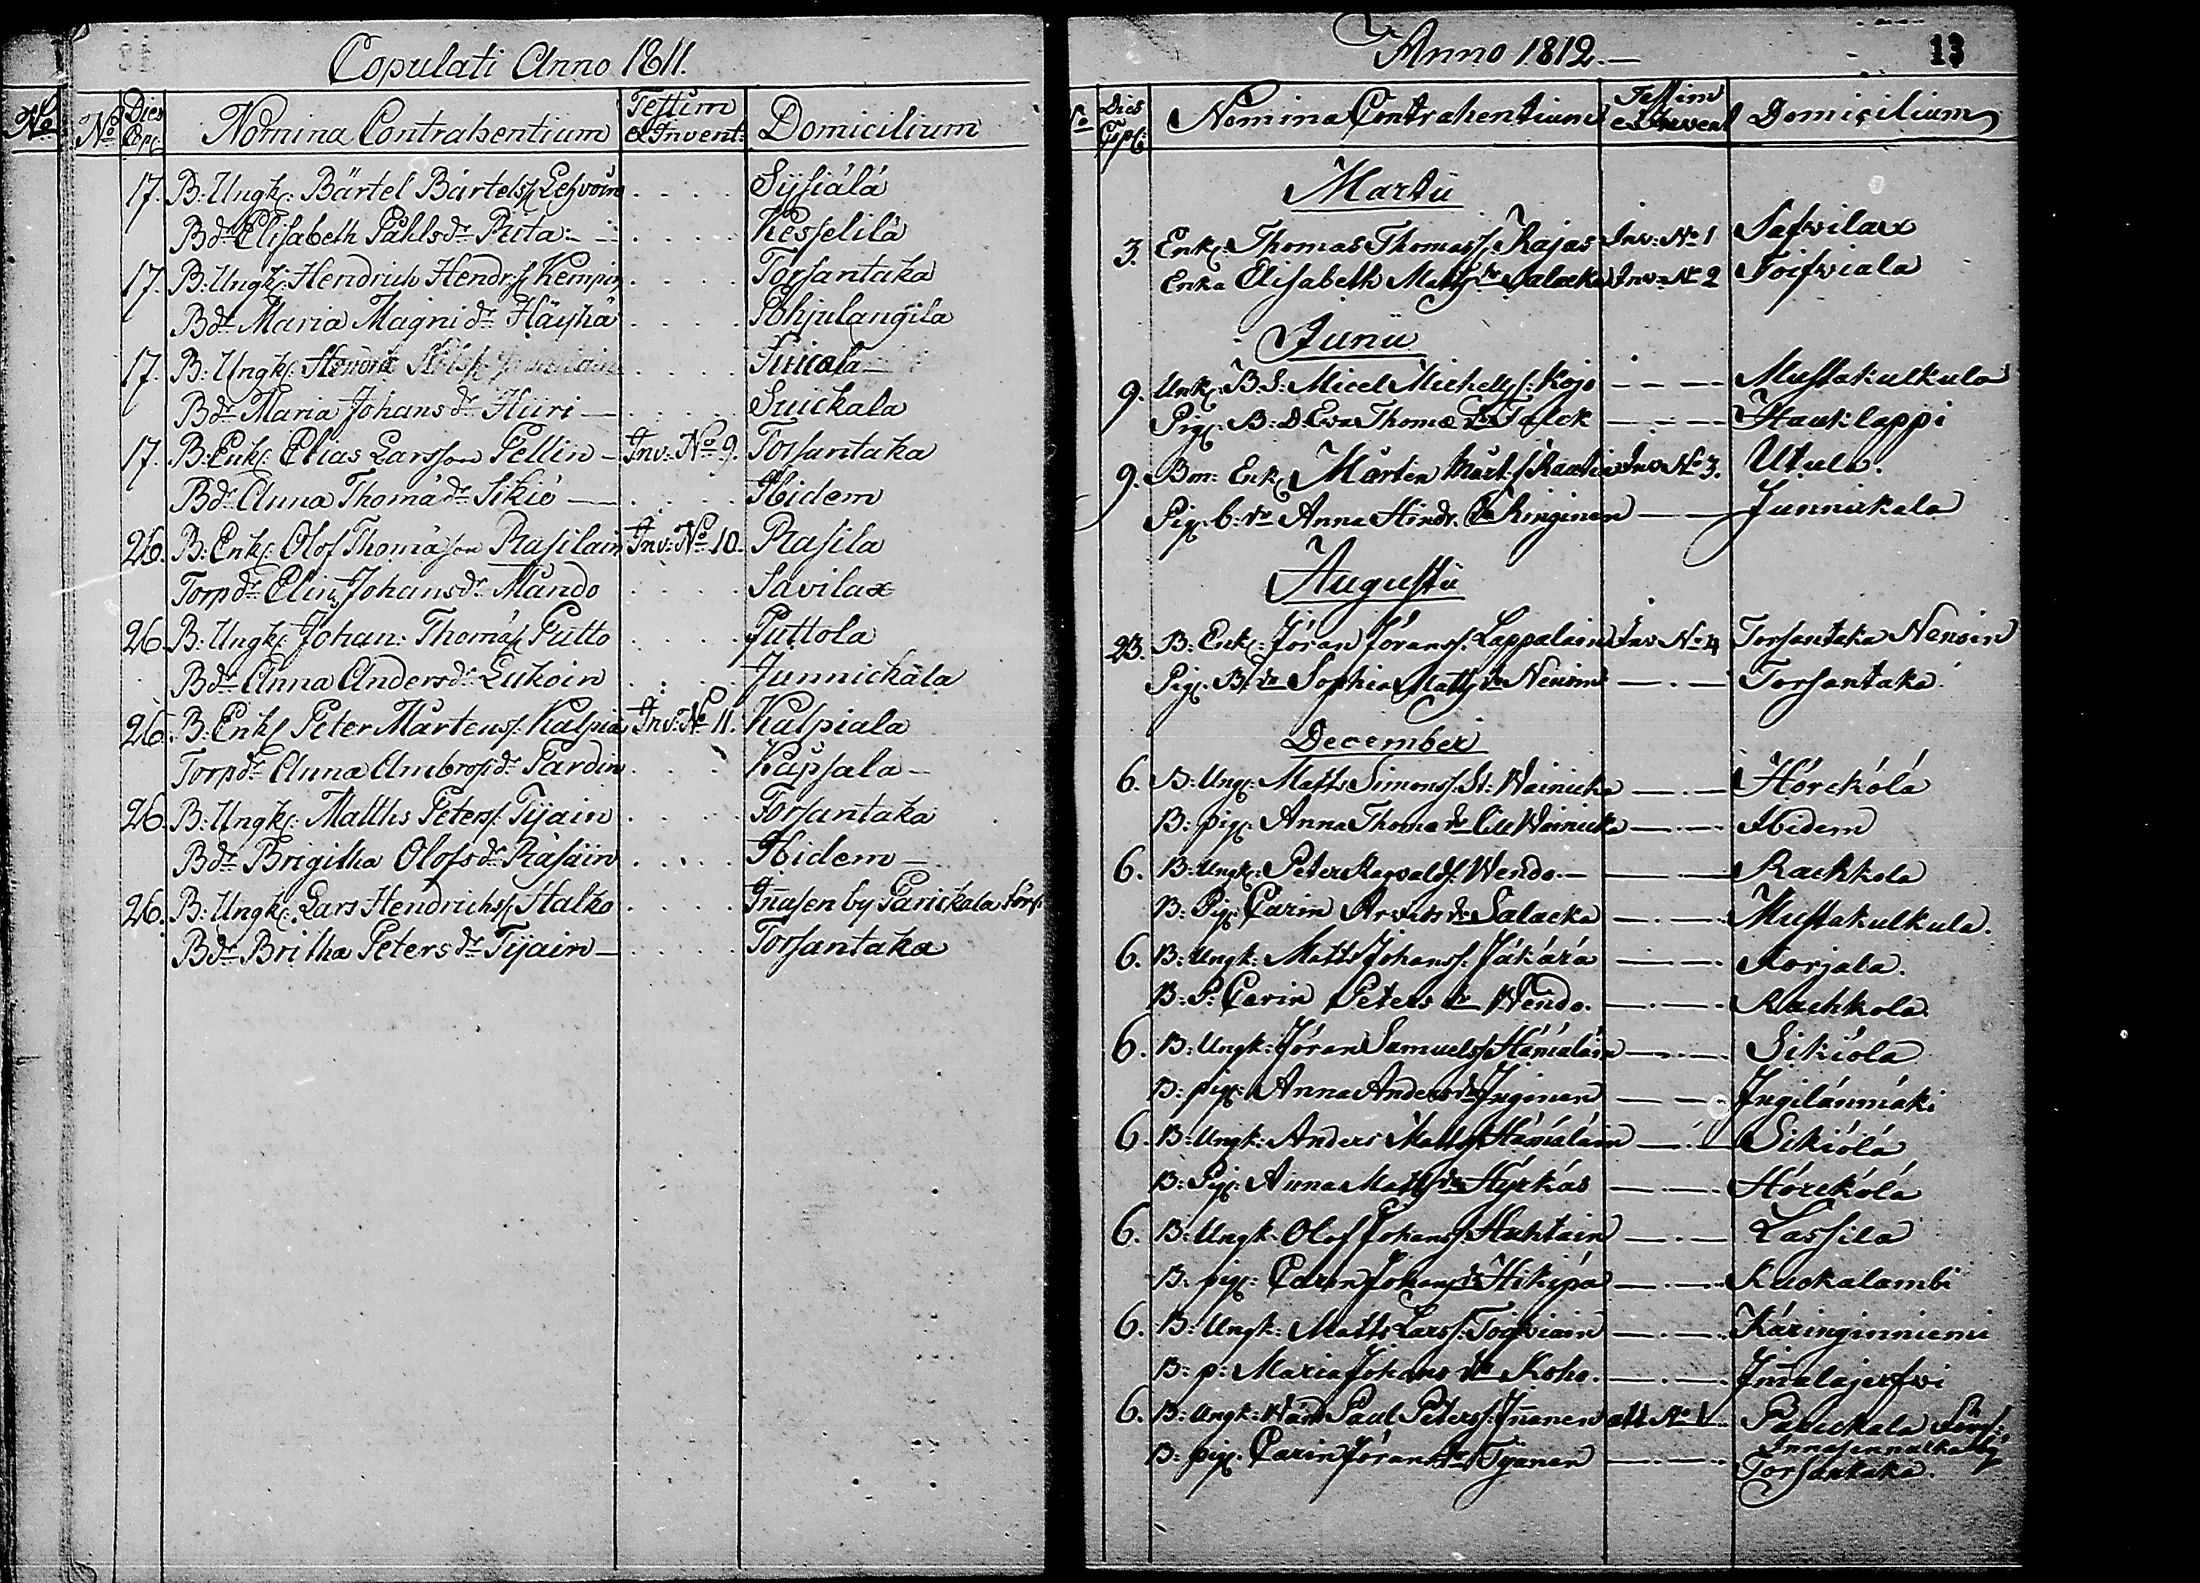 Copulati Anno 1811.
No No Dies Cop: Nomina Contrahentium Testim & Invent: Domicilium
17. B: Ungk: Bärtel Bärtelss: Lehvoin Syjsiälä
Bdr Elisabeth Påhlsdr Rita Kesselilä
17. B: Ungk: Hendrich Hendrss: Kempin Torsantaka
Bdr Maria Magnidr Häyhä Pohjulangila
17. B: Ungk:
Bdr Maria Johansdr Hiiri Suickala
17. B: Enkl: Elias Larsson Pellin Inv: No 9. Torsantaka
Bdr Anna Thomädr Sikiö Ibidem
26. B: Enkl: Olof Thomäson Rasilain Inv: No 10. Rasila
Torpdr Elin Johansdr Mändo Savilax
26. B: Ungk: Johan: Thomäss: Putto Puttola
Bdr Anna Andersdr Lukoin Junnickäla
26. B: Enkl Peter Mårtenss: Kalpia Inv: No 11. Kalpiala
Torpdr Anna Ambrosidr Pardin Kapsala
26. B: Ungk: Matths Peterss: Tijain Torsantaka
Bdr Brigitha Olofsdr Räsäin Ibidem
26. B: Ungk: Lars Hendrichss: Halko Inasen by Parickala Förs:
Bdr Britha Petersdr Tijain Torsantaka
Anno 1812. 13
No Dies Copl: Nomina Contrahentium Testim et Invent Domicilium
Martii
3. Enkl: Thomas Thomass: Rajas Inv: No 1 Safwilax
Enka Elisabeth Mattsdr Salacka Inv: No 2 Toifwiala
Junii
9. Unk: B. S: Micel Michelss: Kojo Mustakulkula
Pig: B: D: Eva Thomædr Falck Hauklappi
9. Bon: Enkl Mårten Mårt:s: Raatia Inv No 3. Utula.
Pig: b: dr Anna Hindr: dr Ringinen Junnikala
Augusti
23. B: Enkl: Jöran Jöranss: Lappalain Inv No 4 Torsantaka Nensin
Pig: B: dr Sophia Mattsdr Nensin Torsantaka
December
6. B: Ung: Matts Simonss: St: Wainicka Hörckölä
B: pig: Anna Thomædr Lill Wainicka Ibidem
6. B: Ungk: Peter Ragvalds: Wendo. Rachkola
B: Pig: Carin Arvidsdr Salacka Mustakulkula.
6. B: Ungk: Matts Johanss: Jäkärä Korjala.
B: P: Carin Petersdr Wendo. Rachkola.
6. B: Ungk: Jöran Samuelss: Hämäläin Sikiöla
B: pig: Anna Andersdr Inginen Ingilänmäki
6. B: Ungk: Anders Mattss: Hämäläin Sikiölä
B: Pig: Anna Mattsdr Hyrkäs Hörckölä
6. B: Ungk: Olof Johanss: Huhtain Lassila
B: pig: Carin Johansdr Hikipä Kuokalambi
6. B: Ungk: Matts Larss: Togwiain Käringinniemi
B: p: Maria Johansdr Koho. Immalajerfwi
6. B: Ungk: Paul Peterss: Innanen att No 1 Parickala Förs:
Innasennalka by
B: pig: Carin Jöransdr Tyänen Torsantaka.